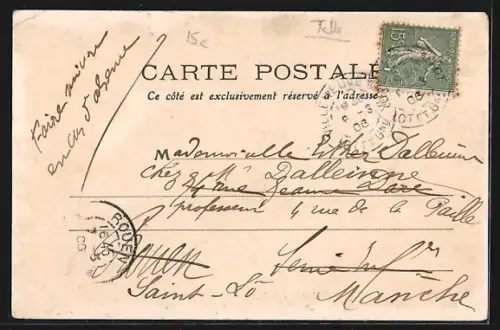 15c
Faire suivre
en cas d'absence
CARTE POSTALE
Ce côté est exclusivement réservé à l'adresse
Mademoiselle Dalleinne
chez Mr Dalleinne
4 rue Jeanne Darc
professeur 4 rue de la Paille
ROUEN
Rouen Seine Infre
Saint-Lô Manche